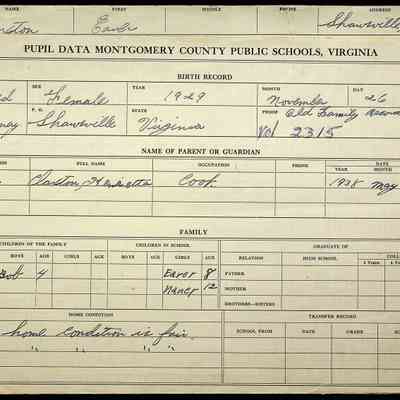 NAME FIRST MIDDLE PHONE ADDRESS
Shawsville,
PUPIL DATA MONTGOMERY COUNTY PUBLIC SCHOOLS, VIRGINIA
BIRTH RECORD
SEX YEAR MONTH DAY
Female 1929 November 26
P. O. STATE PROOF Old Family Record
Shawsville Virginia Vol 2315
NAME OF PARENT OR GUARDIAN
FULL NAME OCCUPATION PHONE DATE
YEAR MONTH
Claxton, Henrietta Cook 1938 May
FAMILY
CHILDREN OF THE FAMILY CHILDREN IN SCHOOL GRADUATE OF
BOYS AGE GIRLS AGE BOYS AGE GIRLS AGE RELATION HIGH SCHOOL
2 Years 4 Years
Bob 4 8 FATHER
Nancy 12 MOTHER
BROTHERS—SISTERS
HOME CONDITION TRANSFER RECORD
home condition is fair. SCHOOL FROM DATE GRADE SCHOOL TO
" " "